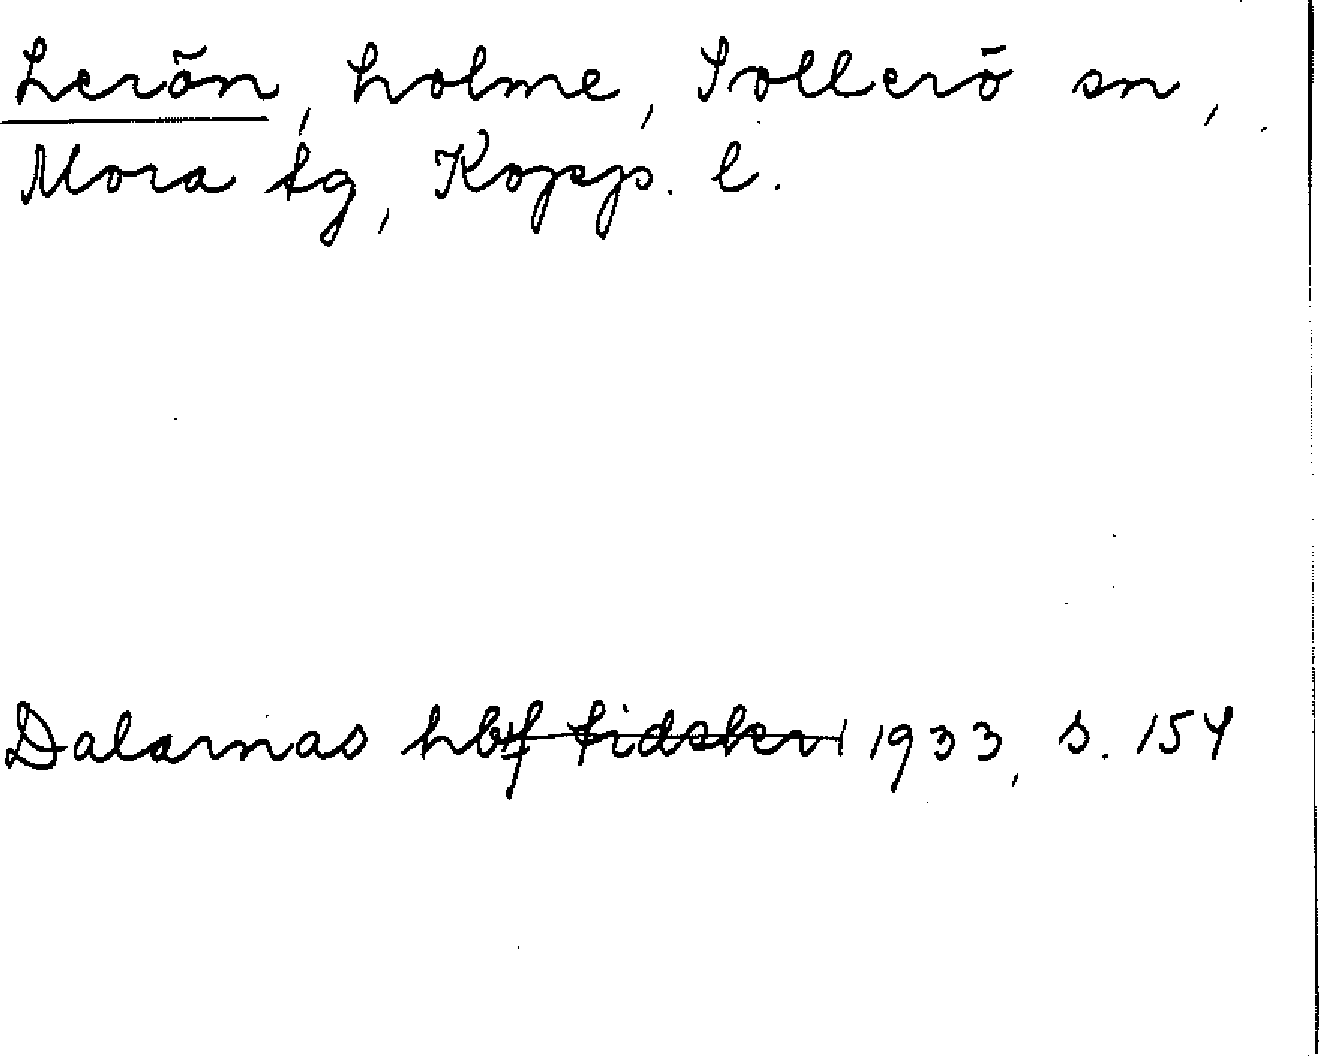 Lerön, holme, Sollerö sn,
Mora tg, Kopp. l.
Dalarnas hbf tidskr 1933, s. 154